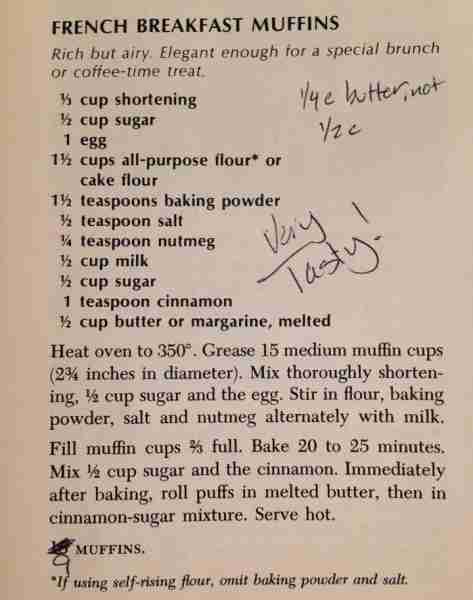 FRENCH BREAKFAST MUFFINS
Rich but airy. Elegant enough for a special brunch
or coffee-time treat.
⅓ cup shortening
½ cup sugar
1 egg
1½ cups all-purpose flour* or
cake flour
1½ teaspoons baking powder
½ teaspoon salt
¼ teaspoon nutmeg
½ cup milk
½ cup sugar
1 teaspoon cinnamon
½ cup butter or margarine, melted
¼ c butter, not
½ c
Very
Tasty!
Heat oven to 350°. Grease 15 medium muffin cups
(2¾ inches in diameter). Mix thoroughly shorten-
ing, ½ cup sugar and the egg. Stir in flour, baking
powder, salt and nutmeg alternately with milk.
Fill muffin cups ⅔ full. Bake 20 to 25 minutes.
Mix ½ cup sugar and the cinnamon. Immediately
after baking, roll puffs in melted butter, then in
cinnamon-sugar mixture. Serve hot.
MUFFINS.
9
*If using self-rising flour, omit baking powder and salt.